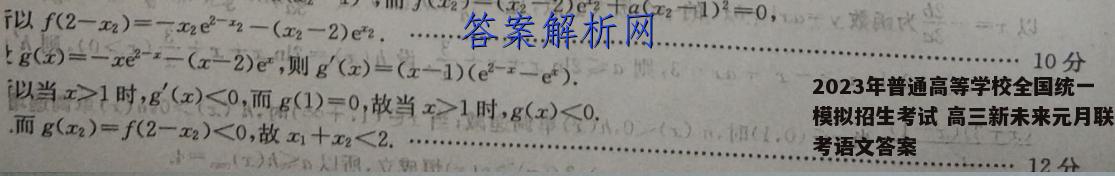 f(x₂)=(x₂-2)eˣ²+a(x₂-1)²=0,
以 f(2-x₂)=-x₂e²⁻ˣ²-(x₂-2)eˣ². 
答案解析网
10分
g(x)=-xe²⁻ˣ-(x-2)eˣ,则 g′(x)=(x-1)(e²⁻ˣ-eˣ).
以当 x>1 时,g′(x)<0,而 g(1)=0,故当 x>1 时,g(x)<0.
而 g(x₂)=f(2-x₂)<0,故 x₁+x₂<2.
12分
2023年普通高等学校全国统一
模拟招生考试 高三新未来元月联
考语文答案